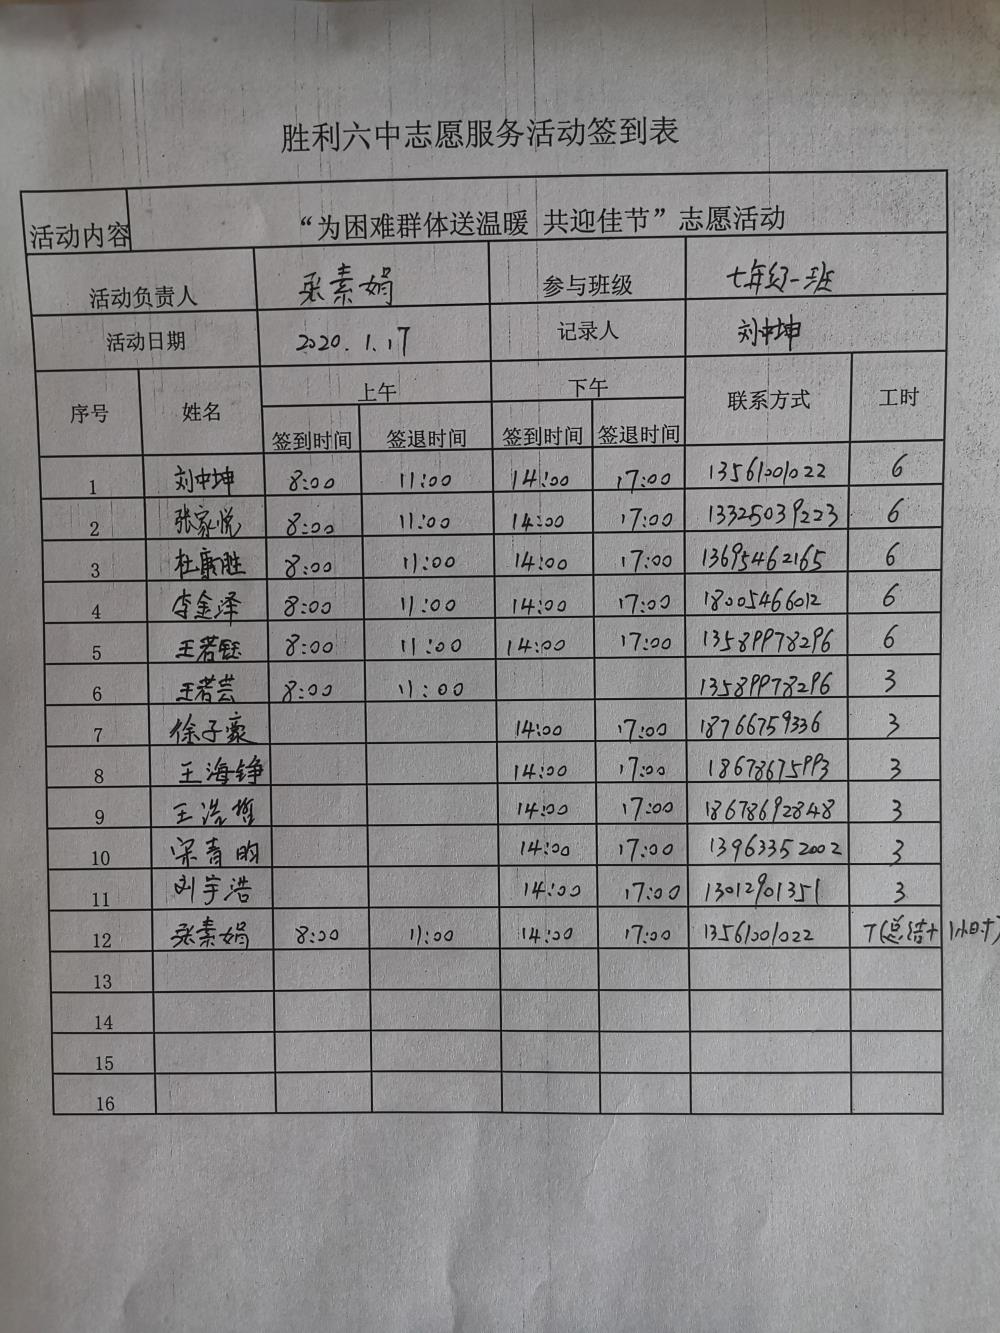 胜利六中志愿服务活动签到表
活动内容 “为困难群体送温暖 共迎佳节”志愿活动
活动负责人 张素娟 参与班级 七年级一班
活动日期 2020.1.17 记录人 刘中坤
序号 姓名 上午 下午 联系方式 工时
签到时间 签退时间 签到时间 签退时间
1 刘中坤 8:00 11:00 14:00 17:00 13561001022 6
2 张家悦 8:00 11:00 14:00 17:00 13325039223 6
3 杜康胜 8:00 11:00 14:00 17:00 13695462165 6
4 李金泽 8:00 11:00 14:00 17:00 18005466012 6
5 王若钰 8:00 11:00 14:00 17:00 13589978296 6
6 王若芸 8:00 11:00 13589978296 3
7 徐子豪 14:00 17:00 18766759336 3
8 王海铮 14:00 17:00 18678675993 3
9 王浩哲 14:00 17:00 18678692848 3
10 宋青昀 14:00 17:00 13963352002 3
11 刘宇浩 14:00 17:00 13012901351 3
12 张素娟 8:00 11:00 14:00 17:00 13561001022 7(总结+1小时)
13
14
15
16